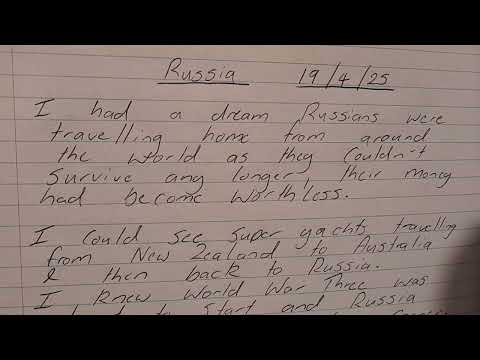 Russia 19/4/25
I had a dream Russians were
travelling home from around
the world as they couldn't
survive any longer, their money
had become worthless.
I could see super yachts travelling
from New Zealand to Australia
& then back to Russia.
I knew World War Three was
to start and Russia